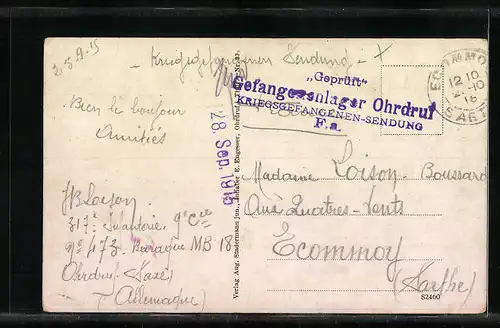 25.9.15
Kriegsgefangenen Sendung - X
„Geprüft“
Gefangenenlager Ohrdruf
KRIEGSGEFANGENEN-SENDUNG
F. a.
ECOMMOY
12 10
-10
16
SARTHE
28. Sep. 1915
Bien le bonjour
Amitiés
JB Loison
317e Infanterie 9e Cie
No 473 Baraque MB 18
Ohrdruf (Saxe)
(Allemagne)
Verlag Aug. Stadermann jun., Inhaber E. Engesser, Ohrdruf
Madame Loison-Boussard
Aux Quatres-Vents
Ecommoy
(Sarthe)
S2460